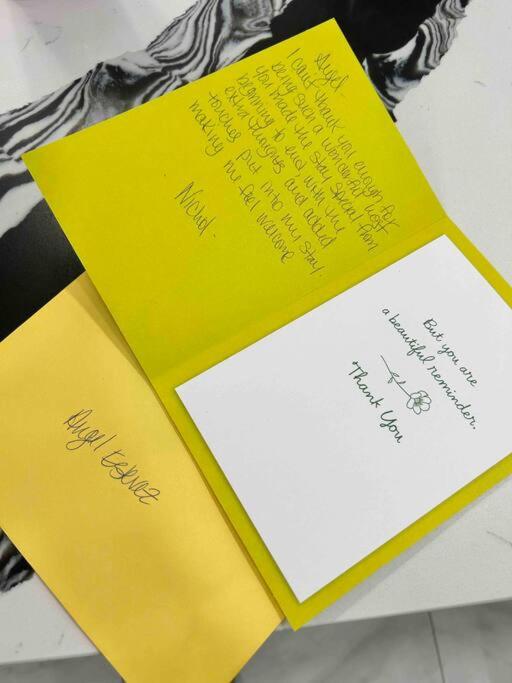 Angel-
I can't thank you enough for
being such a wonderful host
you made the stay special from
beginning to end, with the
extra thoughts and added
touches put into my stay.
making me feel welcome
Nichol-
But you are
a beautiful reminder.
Thank You
Angel